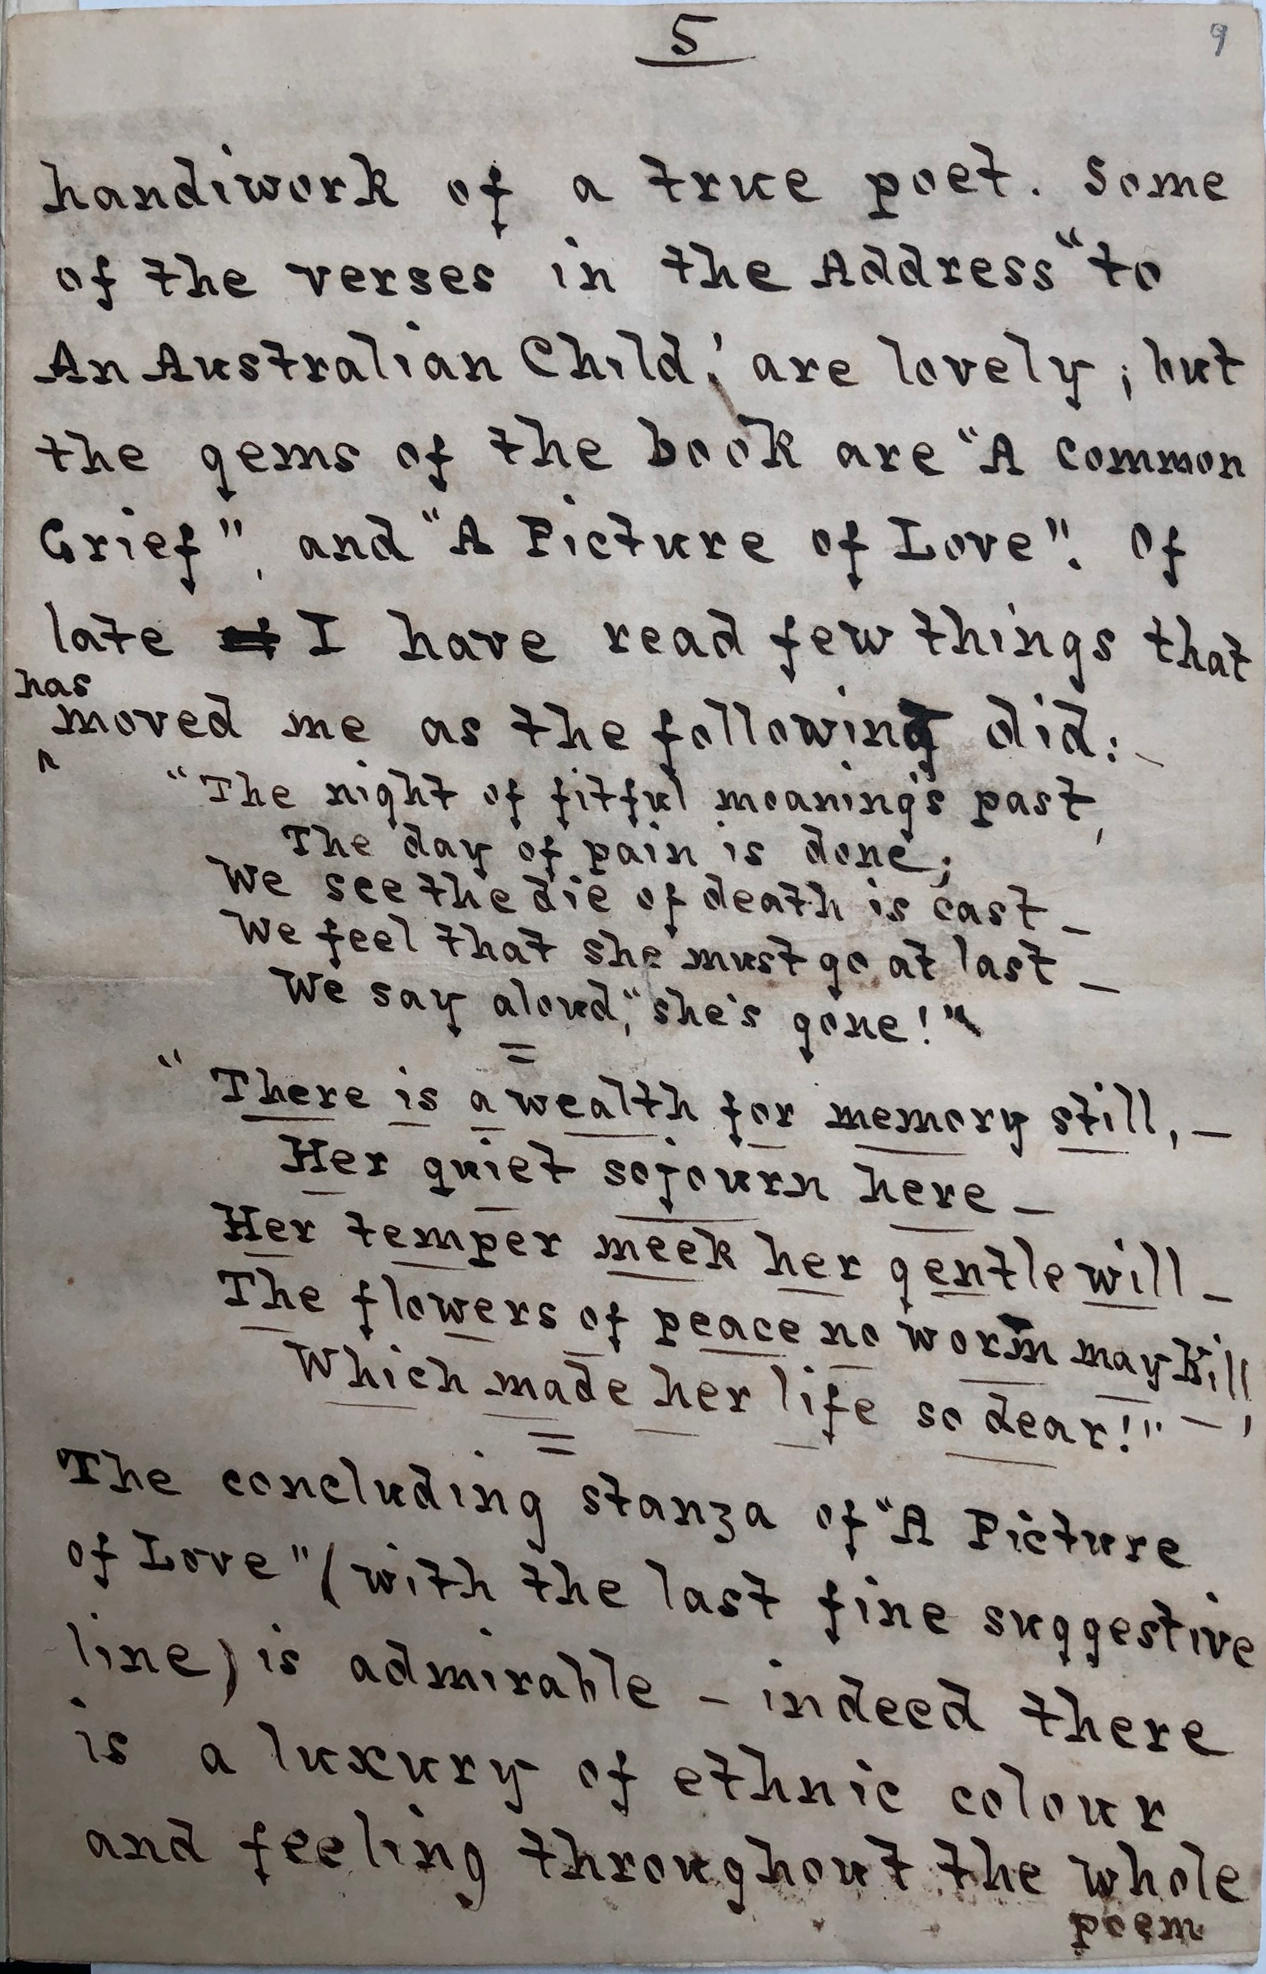 5
9
handiwork of a true poet. Some
of the verses in the Address "to
An Australian Child,' are lovely; but
the gems of the book are "A Common
Grief", and "A Picture of Love". Of
late I have read few things that
has
^moved me as the following did:-
"The night of fitful moaning's past,
The day of pain is done;
We see the die of death is cast –
We feel that she must go at last –
We say aloud, "she's gone!"
=
"There is a wealth for memory still, –
Her quiet sojourn here –
Her temper meek her gentle will –
The flowers of peace no worm may kill,
Which made her life so dear!" –
=
The concluding stanza of "A Picture
of Love" (with the last fine suggestive
line) is admirable – indeed there
is a luxury of ethnic colour
and feeling throughout the whole
poem